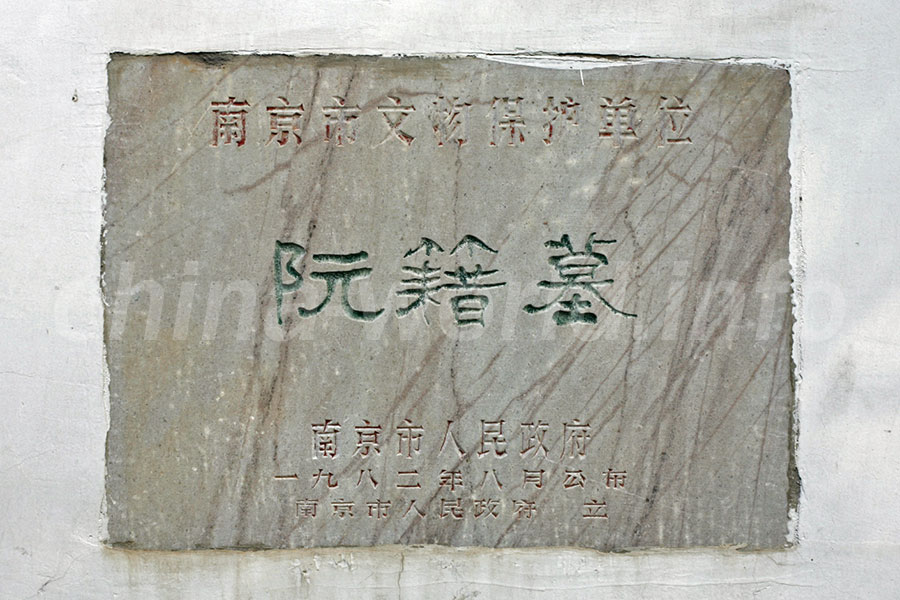 南京市文物保护单位
阮籍墓
南京市人民政府
一九八二年八月公布
南京市人民政府 立
china-world.info